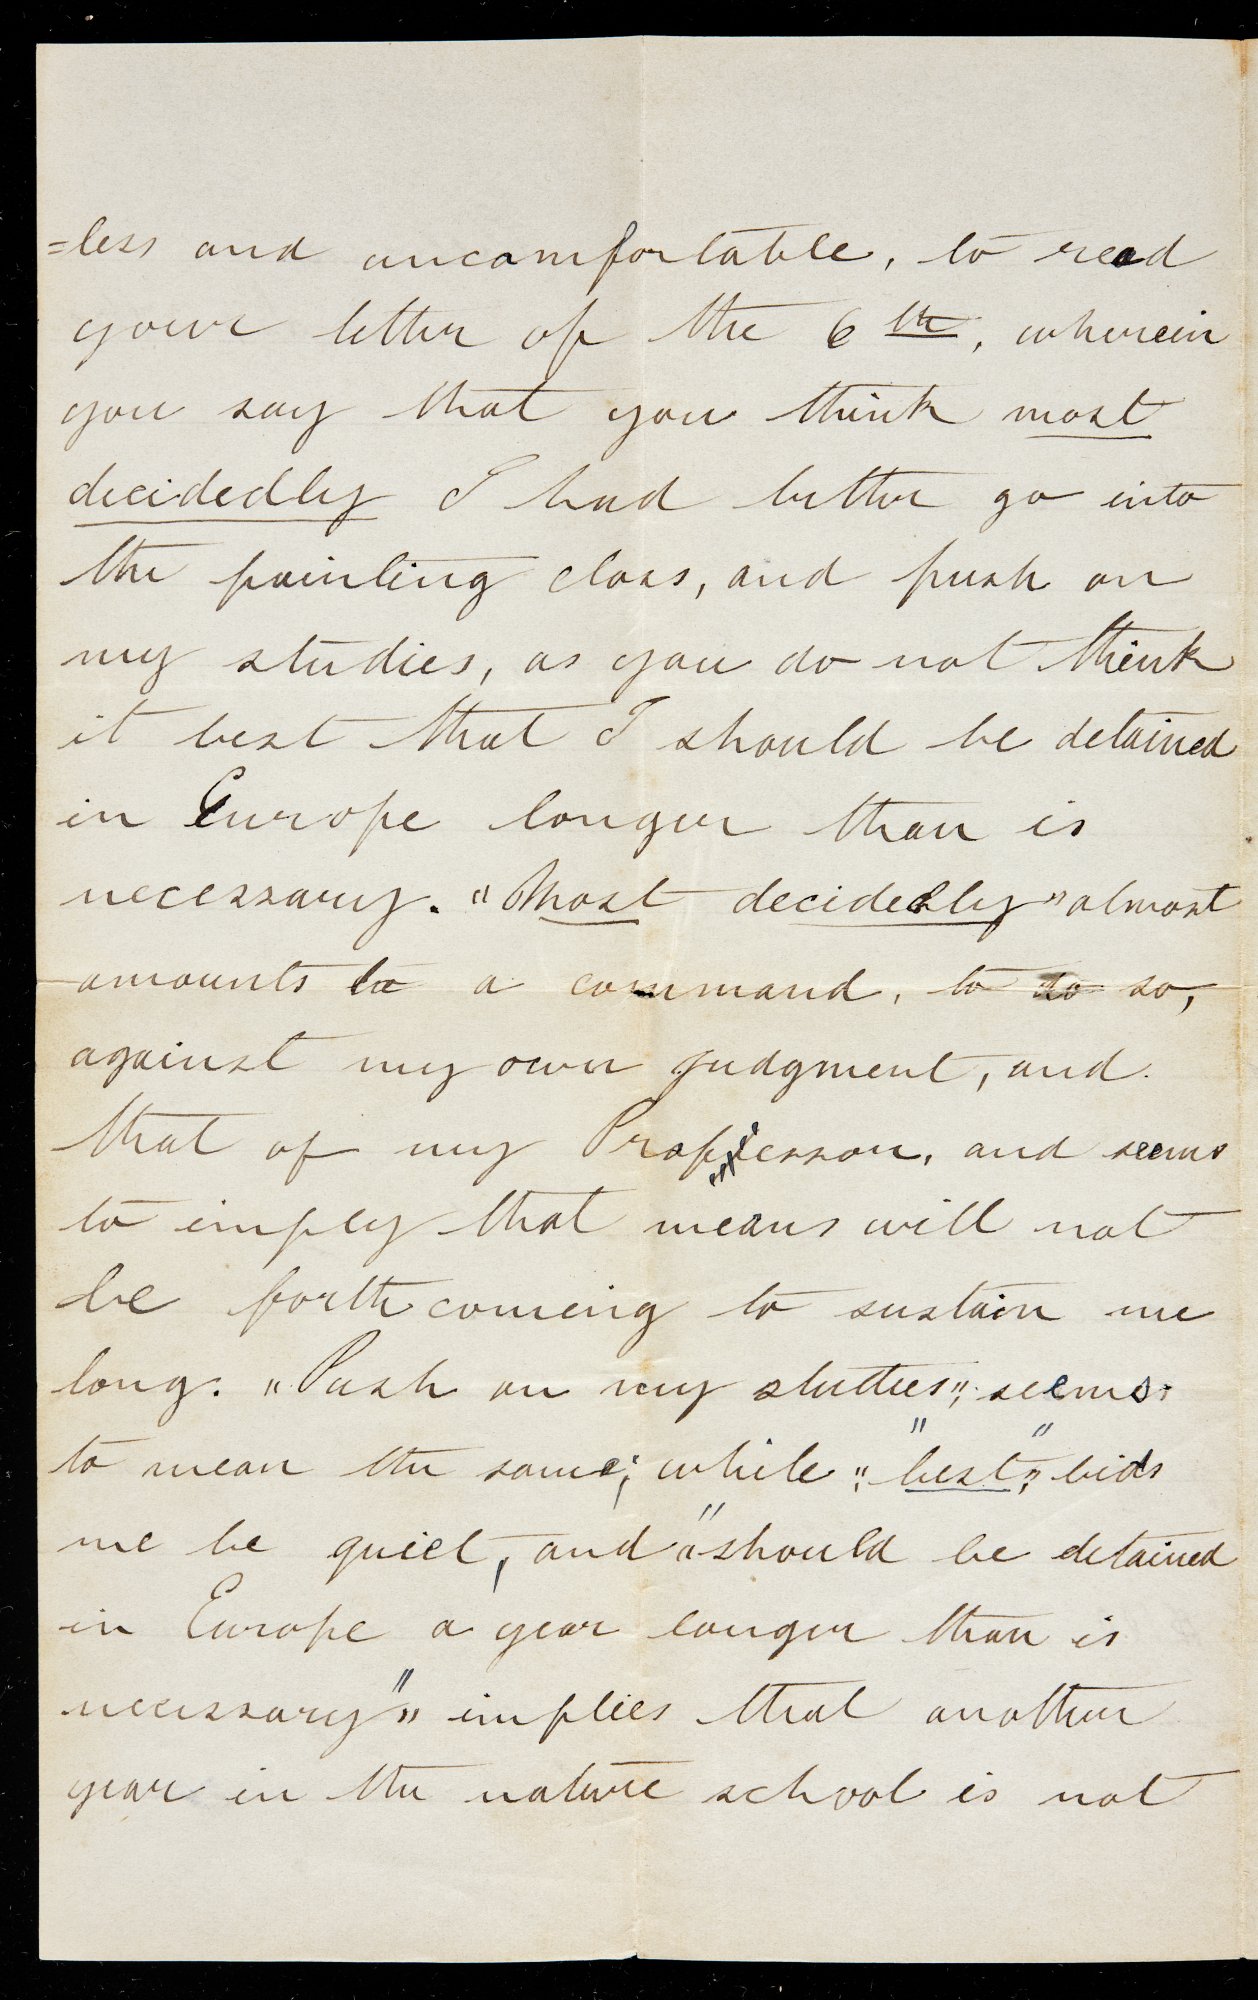 =less and uncomfortable, to read
your letter of the 6th, wherein
you say that you think most
decidedly I had better go into
the painting class, and push on
my studies, as you do not think
it best that I should be detained
in Europe longer than is
necessary. "Most decidedly" almost
amounts to a command, to do so,
against my own judgment, and
that of my Professor, and seems
to imply that means will not
be forthcoming to sustain me
long. "Push on my studies", seems
to mean the same; while, "best", bids
me be quiet, and "should be detained
in Europe a year longer than is
necessary" implies that another
year in the nature school is not